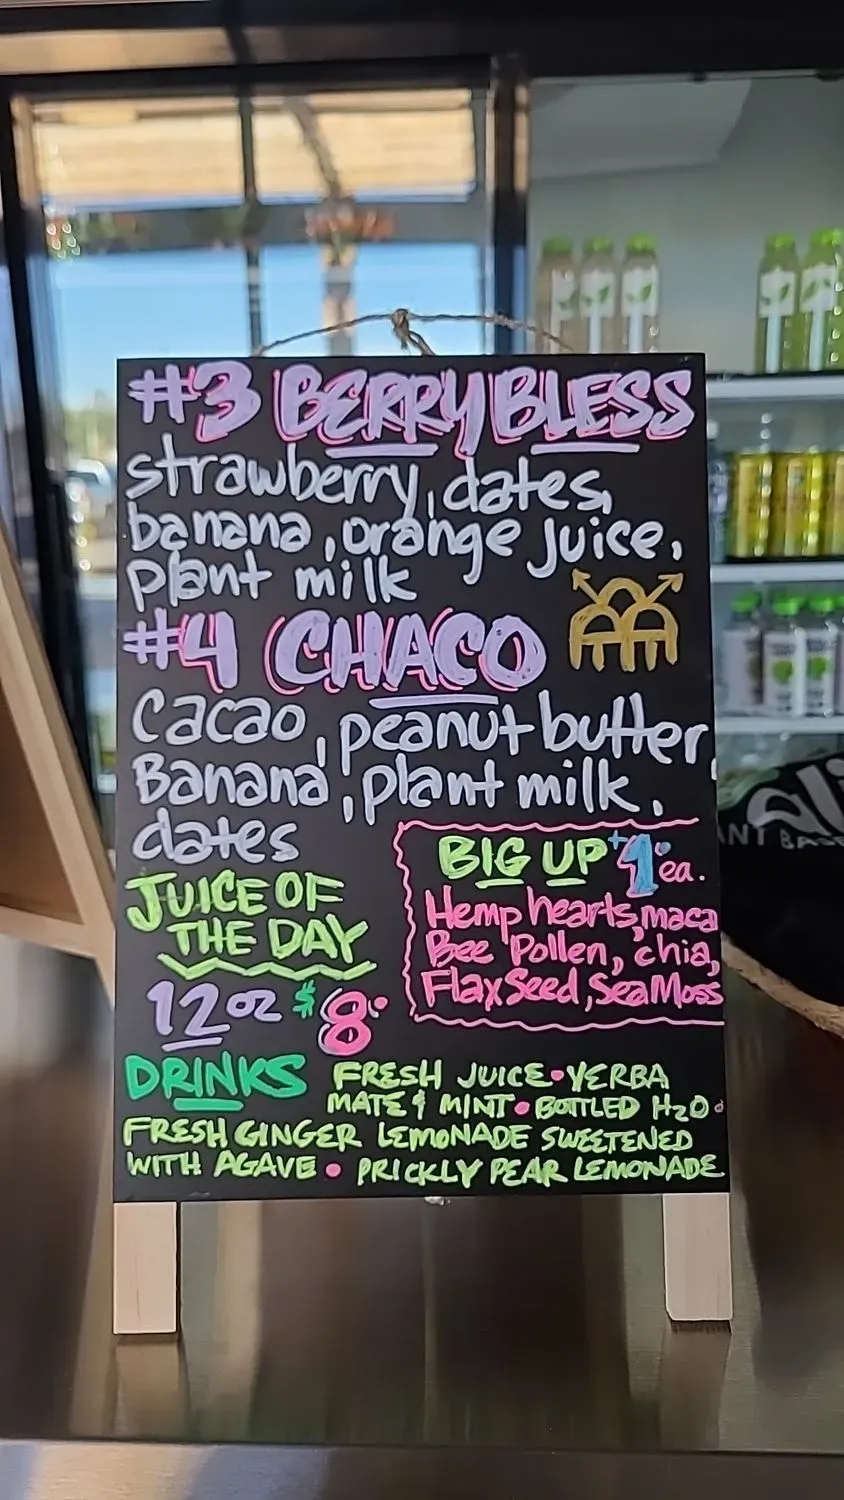 #3 BERRY BLESS
strawberry, dates,
banana, orange juice,
plant milk
#4 CHACO
Cacao, peanut butter,
Banana, plant milk,
dates
BIG UP +$1 ea.
Hemp hearts, maca
Bee Pollen, chia,
Flax Seed, Sea Moss
JUICE OF
THE DAY
12 oz $8
DRINKS FRESH JUICE • YERBA
MATE & MINT • BOTTLED H2O •
FRESH GINGER LEMONADE SWEETENED
WITH AGAVE • PRICKLY PEAR LEMONADE